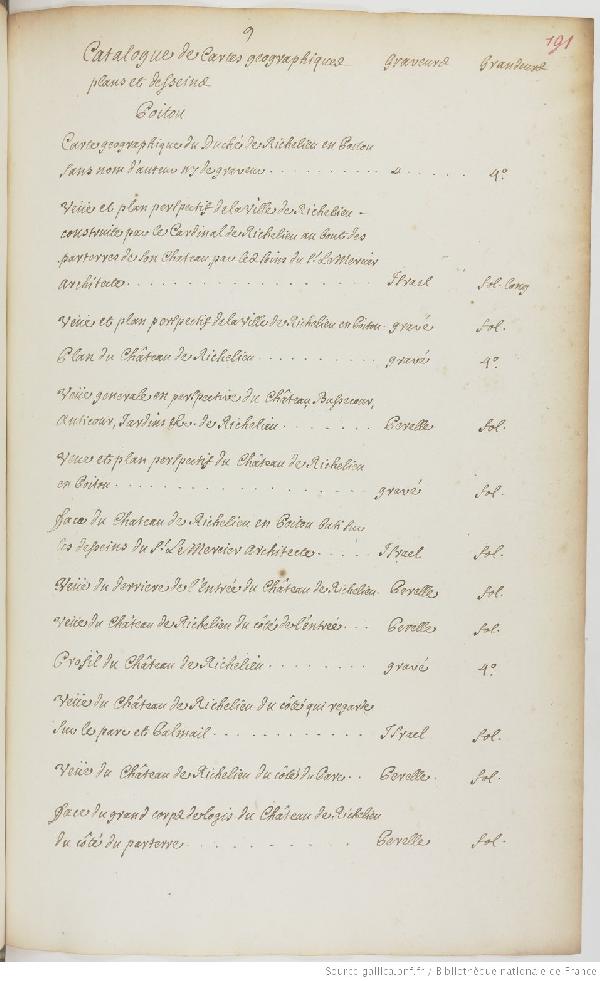 9
191
Catalogue de Cartes geographiques Graveurs Grandeurs
plans et desseins
Poitou
Carte geographique du Duché de Richelieu en Poitou
sans nom d'auteur ny de graveur . . . . . . . . . . 4°
Veüe et plan perspectif de la Ville de Richelieu -
construite par le Cardinal de Richelieu au bout des
parterres de son Chateau, par les soins du Sr. Le Mercier
architecte . . . . . . . . . . Israel fol. long
Veüe et plan perspectif de la Ville de Richelieu en Poitou - gravé fol.
Plan du Château de Richelieu . . . . . . . . gravé 4°.
Veüe generale en perspective du Château, Bassecour,
Anticour, Jardins &c. de Richelieu . . . . . . . Perelle fol.
Veue et plan perspectif du Château de Richelieu
en Poitou . . . . . . . . . . gravé fol.
Face du Chateau de Richelieu en Poitou bati sur
les desseins du Sr. Le Mercier Architecte . . . . . Israel fol.
Veüe du derriere de l'Entrée du Château de Richelieu . Perelle fol.
Veüe du Château de Richelieu du côté de l'entrée . . . Perelle fol.
Profil du Château de Richelieu . . . . . . . gravé 4°.
Veüe du Château de Richelieu du côté qui regarde
sur le parc et Palmail . . . . . . . . . . Israel fol.
Veüe du Château de Richelieu du côté du Parc . . Perelle . fol.
Face du grand corps de logis du Château de Richelieu
du côté du parterre . . . . . . . . . . Perelle fol.
Source gallica.bnf.fr / Bibliothèque nationale de France